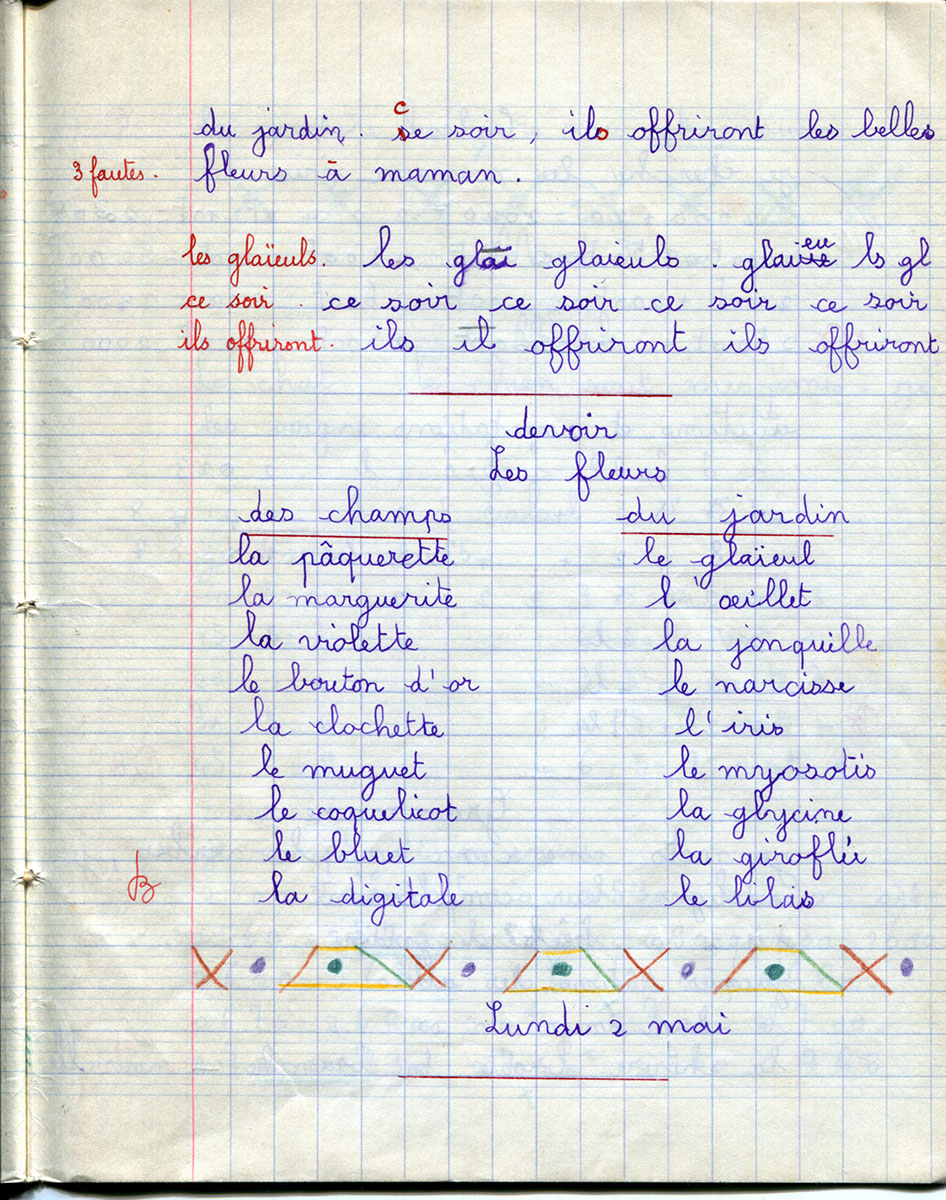 du jardin. ce soir, ils offriront les belles
3 fautes. fleurs à maman.
les glaïeuls. les glai glaieuls. glaieu ls gl
ce soir. ce soir ce soir ce soir ce soir
ils offriront. ils il offriront ils offriront
devoir
Les fleurs
des champs du jardin
la pâquerette le glaïeul
la marguerite l'oeillet
la violette la jonquille
le bouton d'or le narcisse
la clochette l'iris
le muguet le myosotis
le coquelicot la glycine
le bluet la giroflée
B la digitale le lilas
Lundi 2 mai